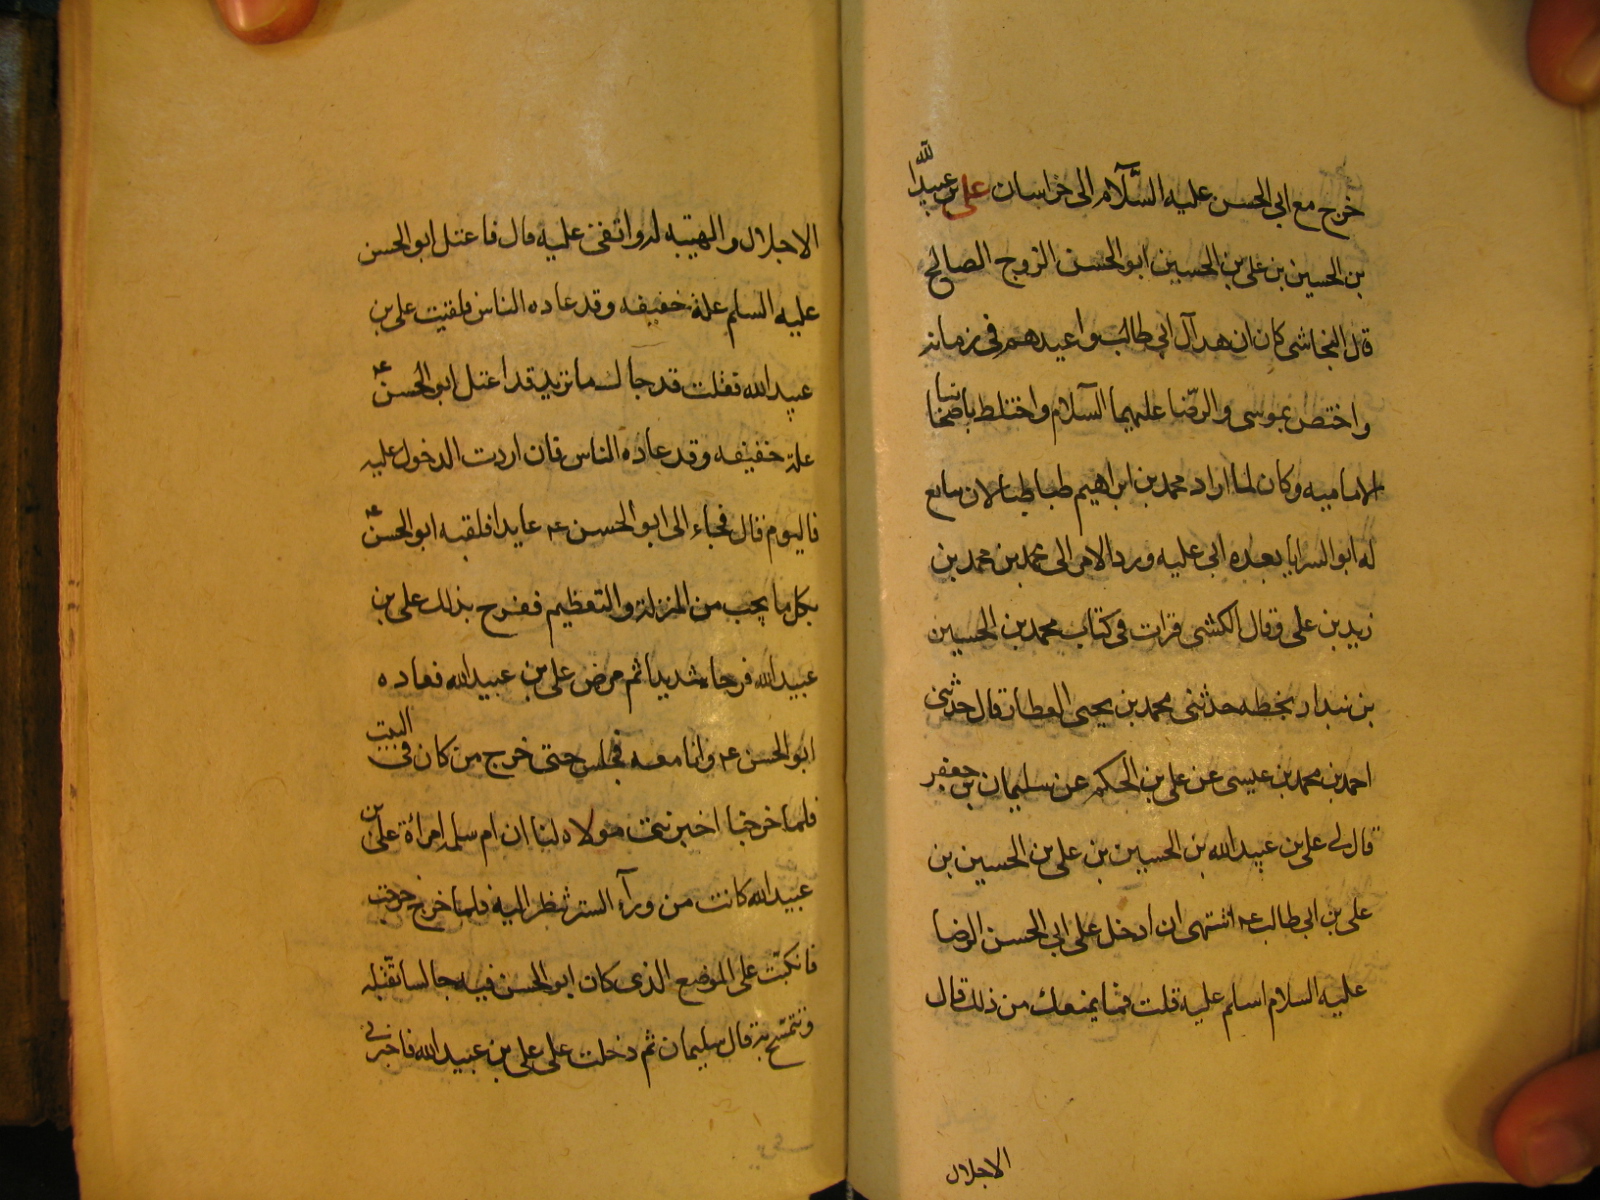 خرج مع ابي الحسن عليه السلام الى خراسان على بن عبيد الله
بن الحسين بن على بن الحسين ابو الحسن الزوج الصالح
قال النجاشى كان ازهد آل ابي طالب واعبدهم فى زمانه
واختص بموسى والرضا عليهما السلام واختلط باصحابنا
الاماميه وكان لما اراد محمد بن ابراهيم طباطبا لان يبايع
له ابو السرايا بعده ابى عليه ورد الامر الى محمد بن محمد بن
زيد بن على وقال الكشى قرات فى كتاب محمد بن الحسين
بن بندار بخطه حدثنى محمد بن يحيى العطار قال حدثنى
احمد بن محمد بن عيسى عن على بن الحكم عن سليمان بن جعفر
قال لى على بن عبيد الله بن الحسين بن على بن الحسين بن
على بن ابي طالب ع اشتهى ان ادخل على ابي الحسن الرضا
عليه السلام اسلم عليه قلت فما يمنعك من ذلك قال
الاجلال
الاجلال والهيبه له واتقى عليه قال فاعتل ابو الحسن
عليه السلم علة خفيفه وقد عاده الناس فلقيت على بن
عبيد الله فقلت قد جاك ما تريد قد اعتل ابو الحسن ع
علة خفيفه وقد عاده الناس فان اردت الدخول عليه
فاليوم قال فجاء الى ابو الحسن ع عايدا فلقيه ابو الحسن ع
بكل ما يحب من المنزلة والتعظيم ففرح بذلك على بن
عبيد الله فرحا شديدا ثم مرض على بن عبيد الله فعاده
ابو الحسن ع وانا معه فجلس حتى خرج من كان فى البيت
فلما خرجنا اخبرتنى مولاه لنا ان ام سلمه امراة على بن
عبيد الله كانت من ورآء الستر تنظر اليه فلما خرج خرجت
فانكبت على الموضع الذى كان ابو الحسن فيه جالسا تقبله
وتتمسح به قال سليمان ثم دخلت على على بن عبيد الله فاخبرنى